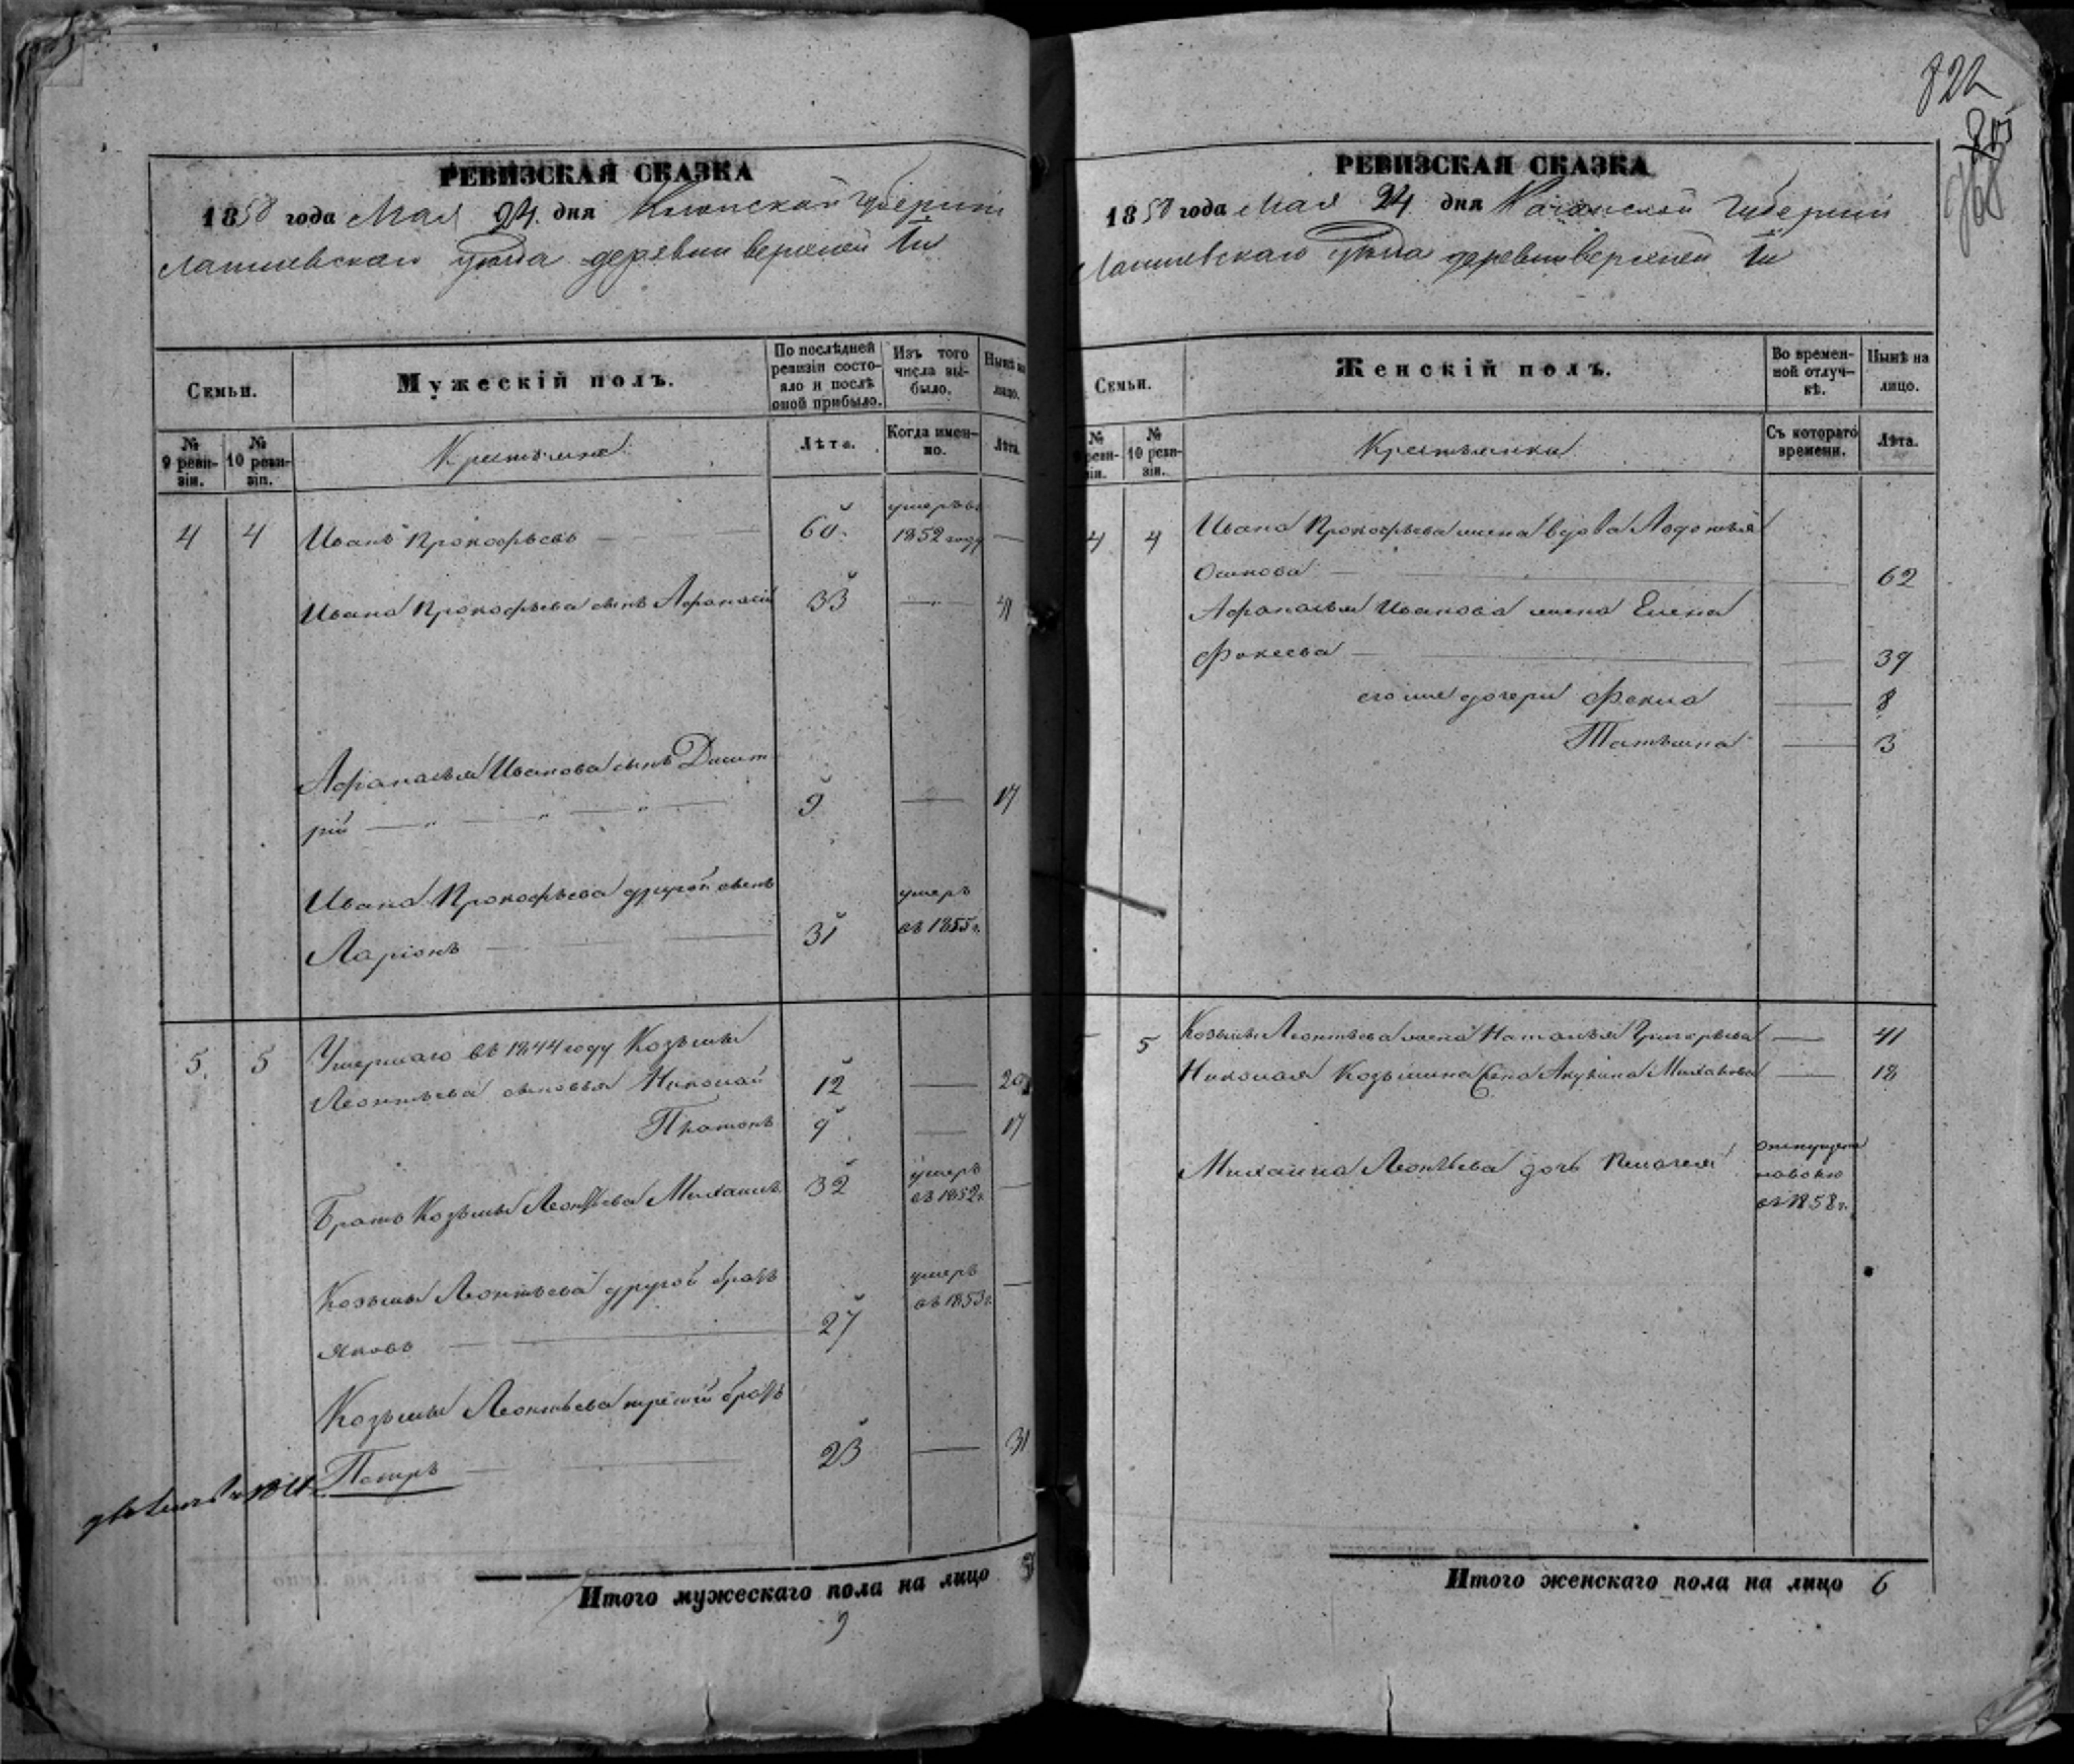 РЕВИЗСКАЯ СКАЗКА
1858 года Мая 24 дня Казанской Губернии
Лаишевскаго уѣзда деревни верхней
Семьи.
Мужескій полъ.
По послѣдней ревизіи состояло и послѣ оной прибыло.
Изъ того числа выбыло.
Нынѣ на лицо.
№ 9 ревизіи.
№ 10 ревизіи.
Крестьяне
Лѣта.
Когда именно.
Лѣта.
4 4 Иванъ Прокофьевъ 60 умеръ въ 1852 году
Ивана Прокофьева сынъ Афанасій 33 41
Афанасья Иванова сынъ Димит
рій 9 17
Ивана Прокофьева другой сынъ
Ларіонъ 31 умеръ въ 1855 г.
5 5 Умершаго въ 1844 году Козьмы
Леонтьева сыновья Николай 12 20
Платонъ 9 17
Братъ Козьмы Леонтьева Михаилъ 32 умеръ въ 1852 г.
Козьмы Леонтьева другой братъ
Яковъ 27 умеръ въ 1853 г.
Козьмы Леонтьева третій братъ
Петръ 23 31
Итого мужескаго пола на лицо 5
9
822
РЕВИЗСКАЯ СКАЗКА
1858 года Мая 24 дня Казанской Губернии
Лаишевскаго уѣзда деревни верхней
Семьи.
Женскій полъ.
Во временной отлучкѣ.
Нынѣ на лицо.
№ 9 ревизіи.
№ 10 ревизіи.
Крестьянки
Съ котораго времени.
Лѣта.
4 4 Ивана Прокофьева жена вдова Авдотья
Осипова 62
Афанасья Иванова жена Елена
Фокеева 39
его же дочери Фекла 8
Татьяна 3
5 Козьмы Леонтьева жена Наталья Григорьева 41
Николая Козьмина жена Акулина Михайлова 18
Михаила Леонтьева дочь Пелагея отпущена на волю въ 1858 г.
Итого женскаго пола на лицо 6